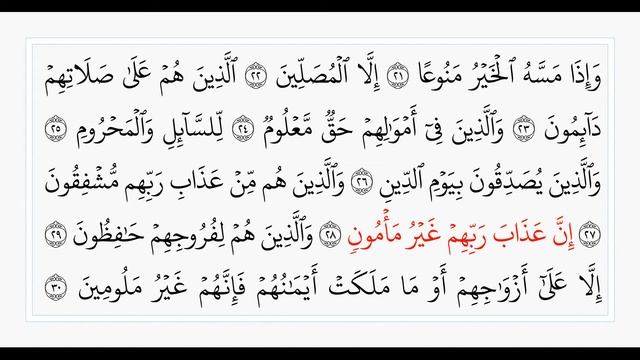 وَإِذَا مَسَّهُ ٱلْخَيْرُ مَنُوعًا ٢١ إِلَّا ٱلْمُصَلِّينَ ٢٢ ٱلَّذِينَ هُمْ عَلَىٰ صَلَاتِهِمْ
دَآئِمُونَ ٢٣ وَٱلَّذِينَ فِىٓ أَمْوَٰلِهِمْ حَقٌّ مَّعْلُومٌ ٢٤ لِّلسَّآئِلِ وَٱلْمَحْرُومِ ٢٥
وَٱلَّذِينَ يُصَدِّقُونَ بِيَوْمِ ٱلدِّينِ ٢٦ وَٱلَّذِينَ هُم مِّنْ عَذَابِ رَبِّهِم مُّشْفِقُونَ
٢٧ إِنَّ عَذَابَ رَبِّهِمْ غَيْرُ مَأْمُونٍ ٢٨ وَٱلَّذِينَ هُمْ لِفُرُوجِهِمْ حَٰفِظُونَ ٢٩
إِلَّا عَلَىٰٓ أَزْوَٰجِهِمْ أَوْ مَا مَلَكَتْ أَيْمَٰنُهُمْ فَإِنَّهُمْ غَيْرُ مَلُومِينَ ٣٠